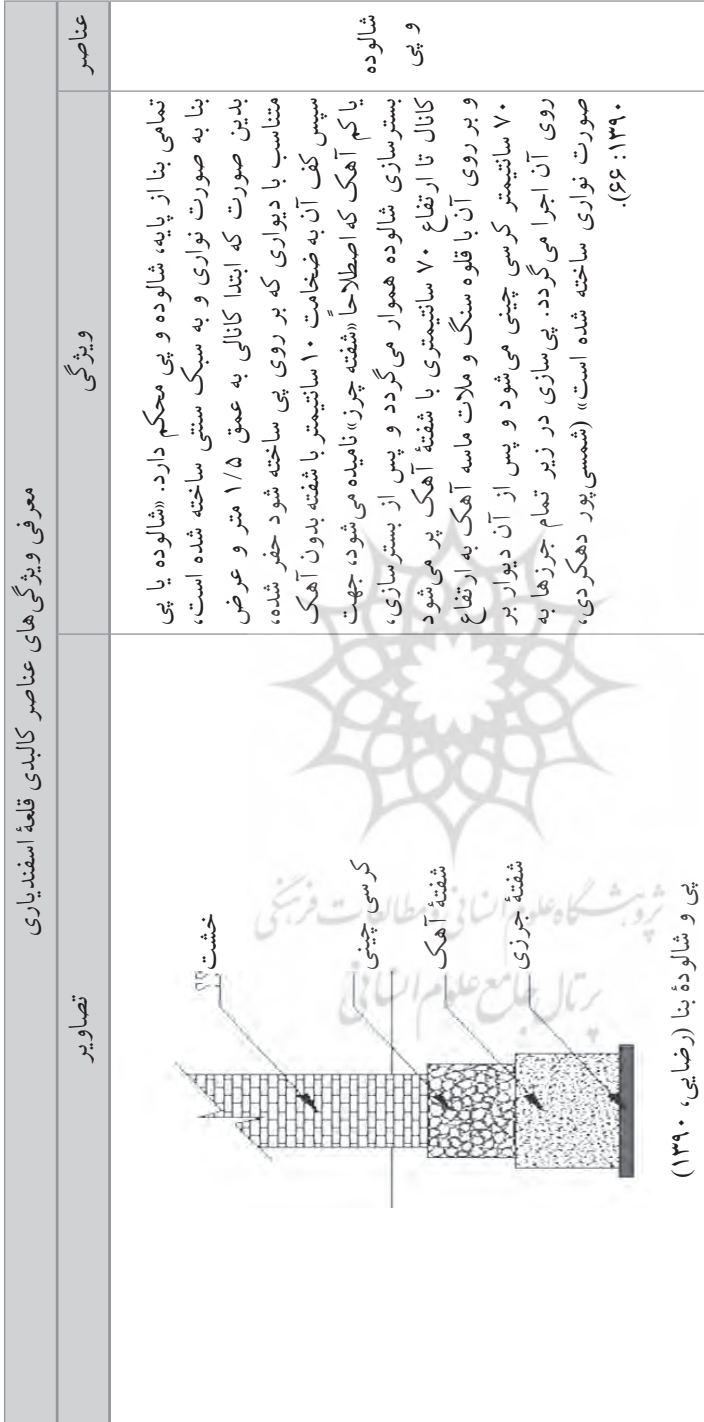 معرفی ویژگی‌های عناصر کالبدی قلعهٔ اسفندیاری
عناصر
ویژگی
تصاویر
شالوده
و پی
تمامی بنا از پایه، شالوده و پی محکم دارد. «شالوده یا پی
بنا به صورت نواری و به سبک سنتی ساخته شده است،
بدین صورت که ابتدا کانالی به عمق ۱/۵ متر و عرض
متناسب با دیواری که بر روی پی ساخته شود حفر شده،
سپس کف آن به ضخامت ۱۰ سانتیمتر با شفته بدون آهک
یا کم آهک که اصطلاحاً «شفته جرز» نامیده می‌شود، جهت
بسترسازی شالوده هموار می‌گردد و پس از بسترسازی،
کانال تا ارتفاع ۷۰ سانتیمتری با شفتهٔ آهک پر می‌شود
و بر روی آن با قلوه سنگ و ملات ماسه آهک به ارتفاع
۷۰ سانتیمتر کرسی چینی می‌شود و پس از آن دیوار بر
روی آن اجرا می‌گردد. پی‌سازی در زیر تمام جرزها به
صورت نواری ساخته شده است» (شمسی‌پور دهکردی،
۱۳۹۰: ۶۶).
خشت
کرسی چینی
شفتهٔ آهک
شفتهٔ جرزی
پی و شالودهٔ بنا (رضایی، ۱۳۹۰)
پژوهشگاه علوم انسانی و مطالعات فرهنگی
پرتال جامع علوم انسانی